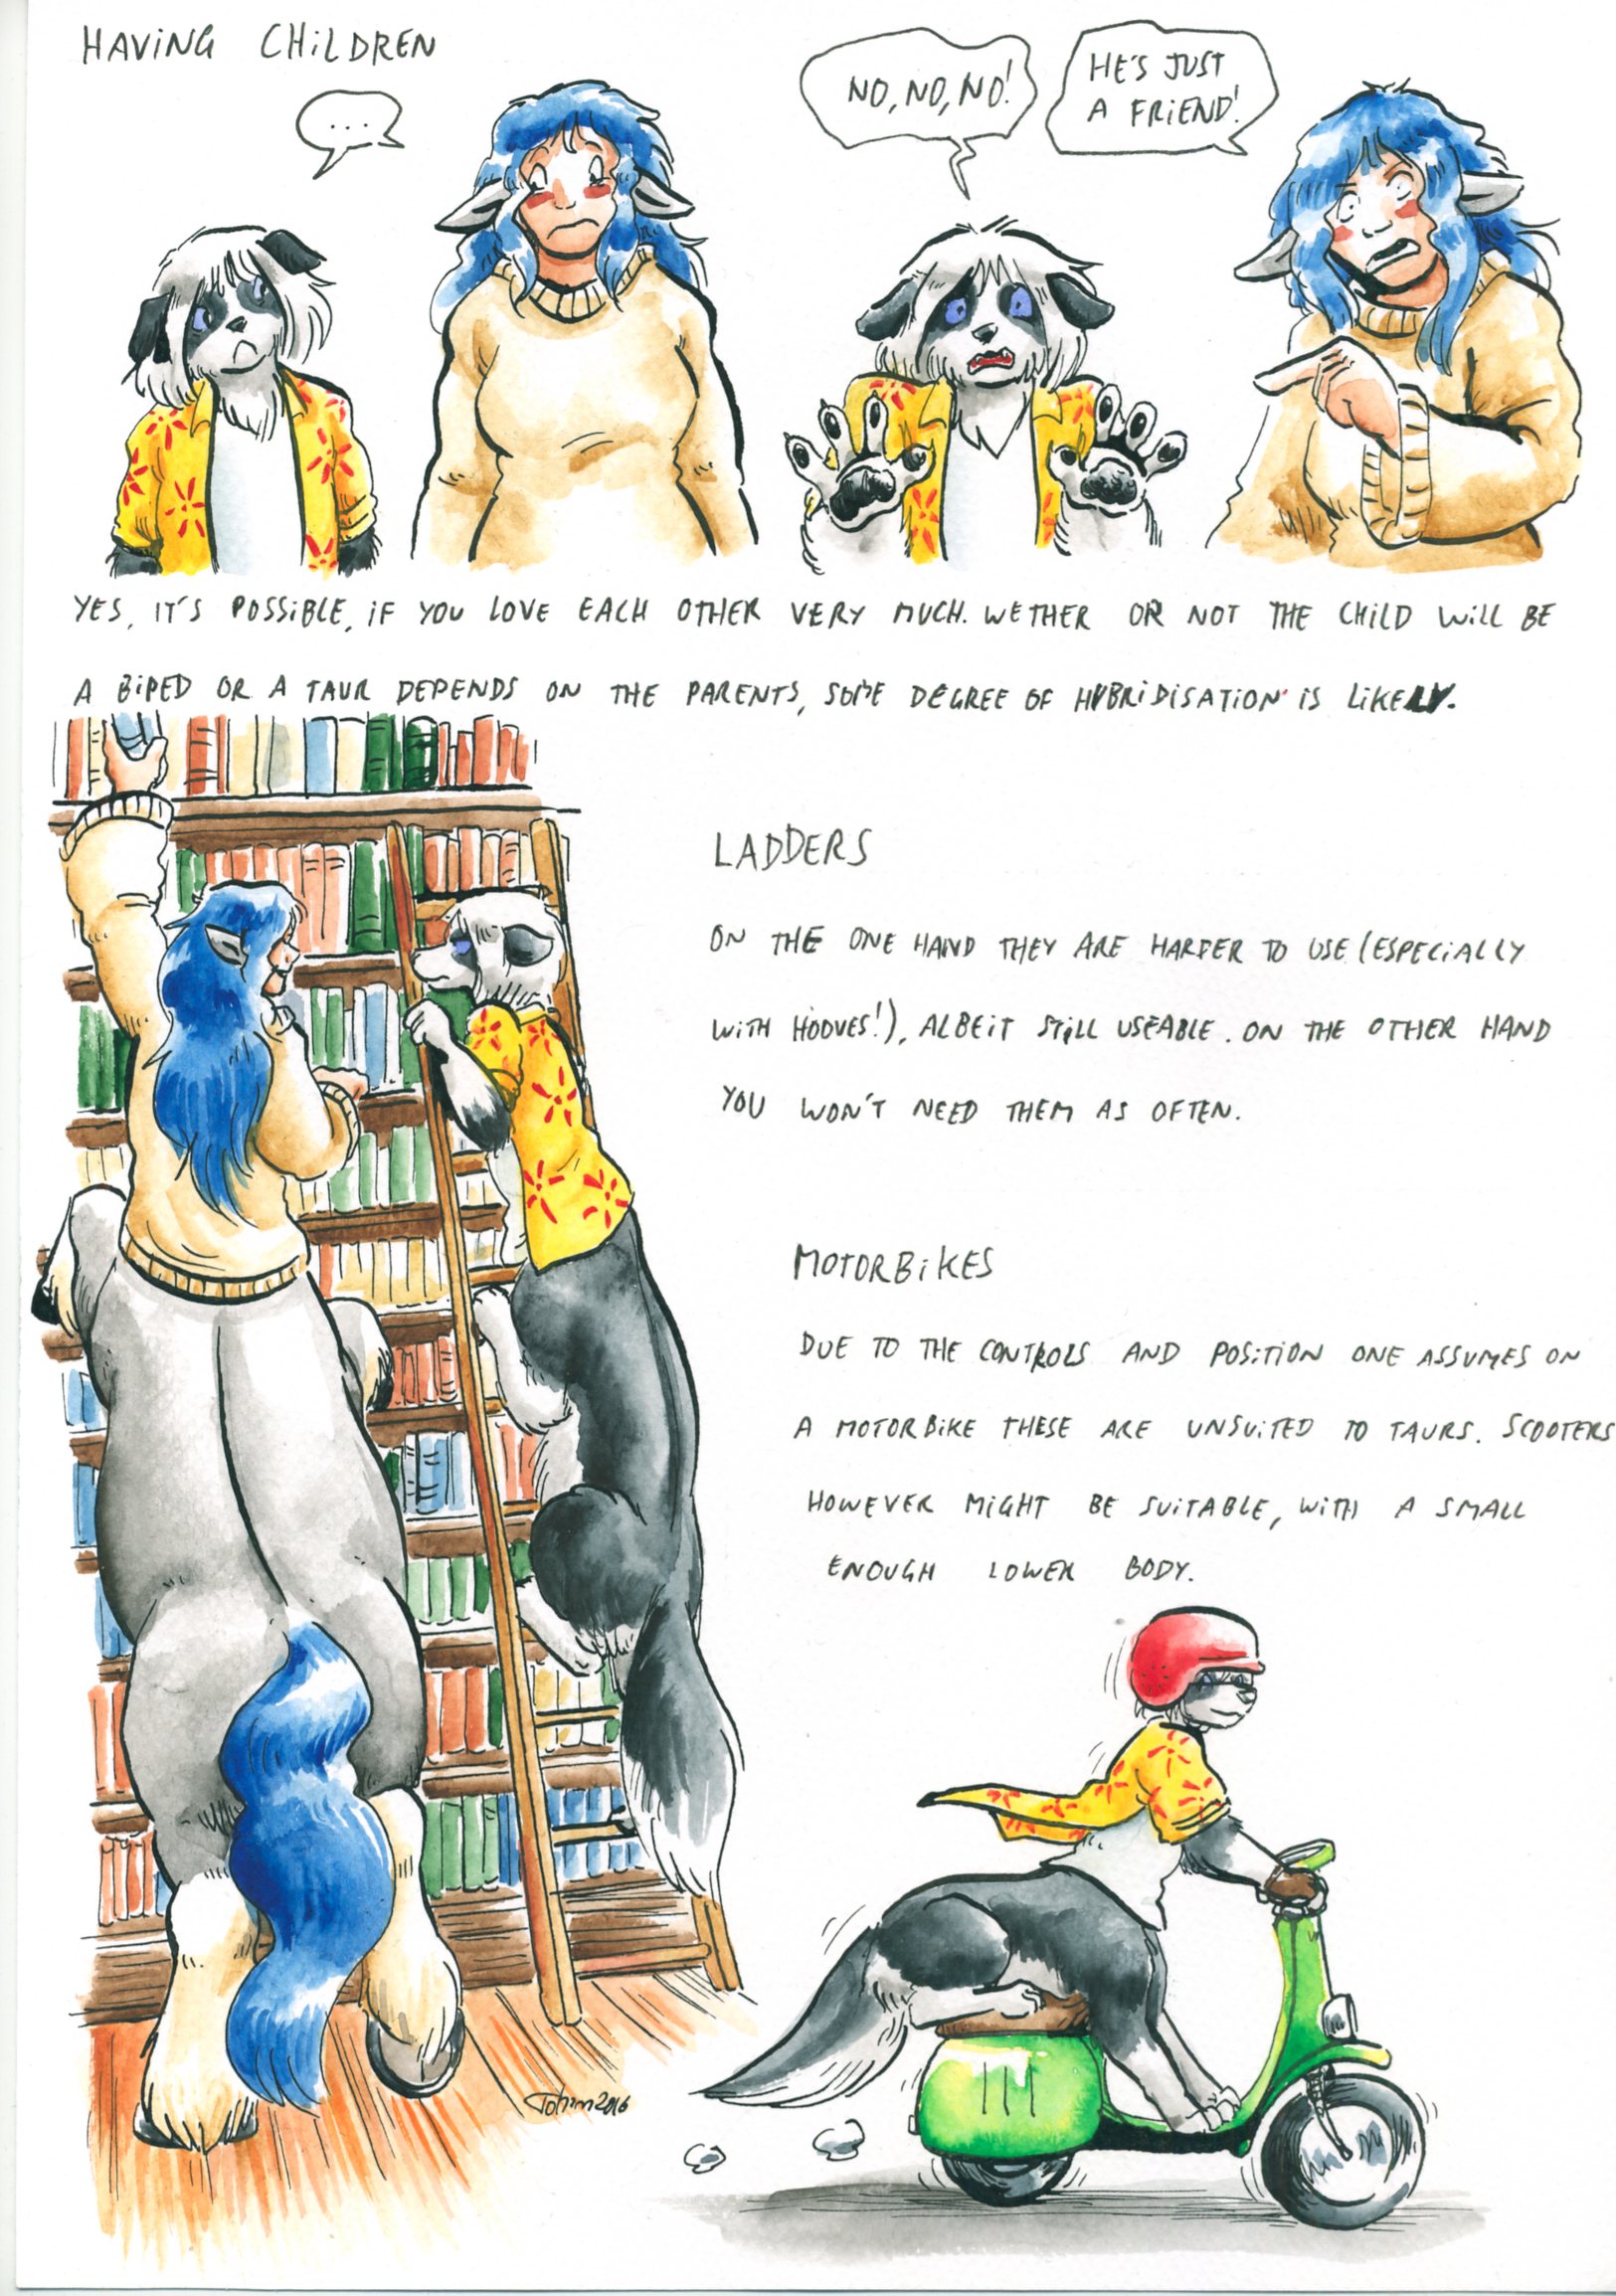 HAVING CHILDREN
...
NO, NO, NO!
HE'S JUST
A FRIEND!
YES, IT'S POSSIBLE, IF YOU LOVE EACH OTHER VERY MUCH. WETHER OR NOT THE CHILD WILL BE
A BIPED OR A TAUR DEPENDS ON THE PARENTS, SOME DEGREE OF HYBRIDISATION IS LIKELY.
LADDERS
ON THE ONE HAND THEY ARE HARDER TO USE (ESPECIALLY
WITH HOOVES!), ALBEIT STILL USEABLE. ON THE OTHER HAND
YOU WON'T NEED THEM AS OFTEN.
MOTORBIKES
DUE TO THE CONTROLS AND POSITION ONE ASSUMES ON
A MOTORBIKE THESE ARE UNSUITED TO TAURS. SCOOTERS
HOWEVER MIGHT BE SUITABLE, WITH A SMALL
ENOUGH LOWER BODY.
2016